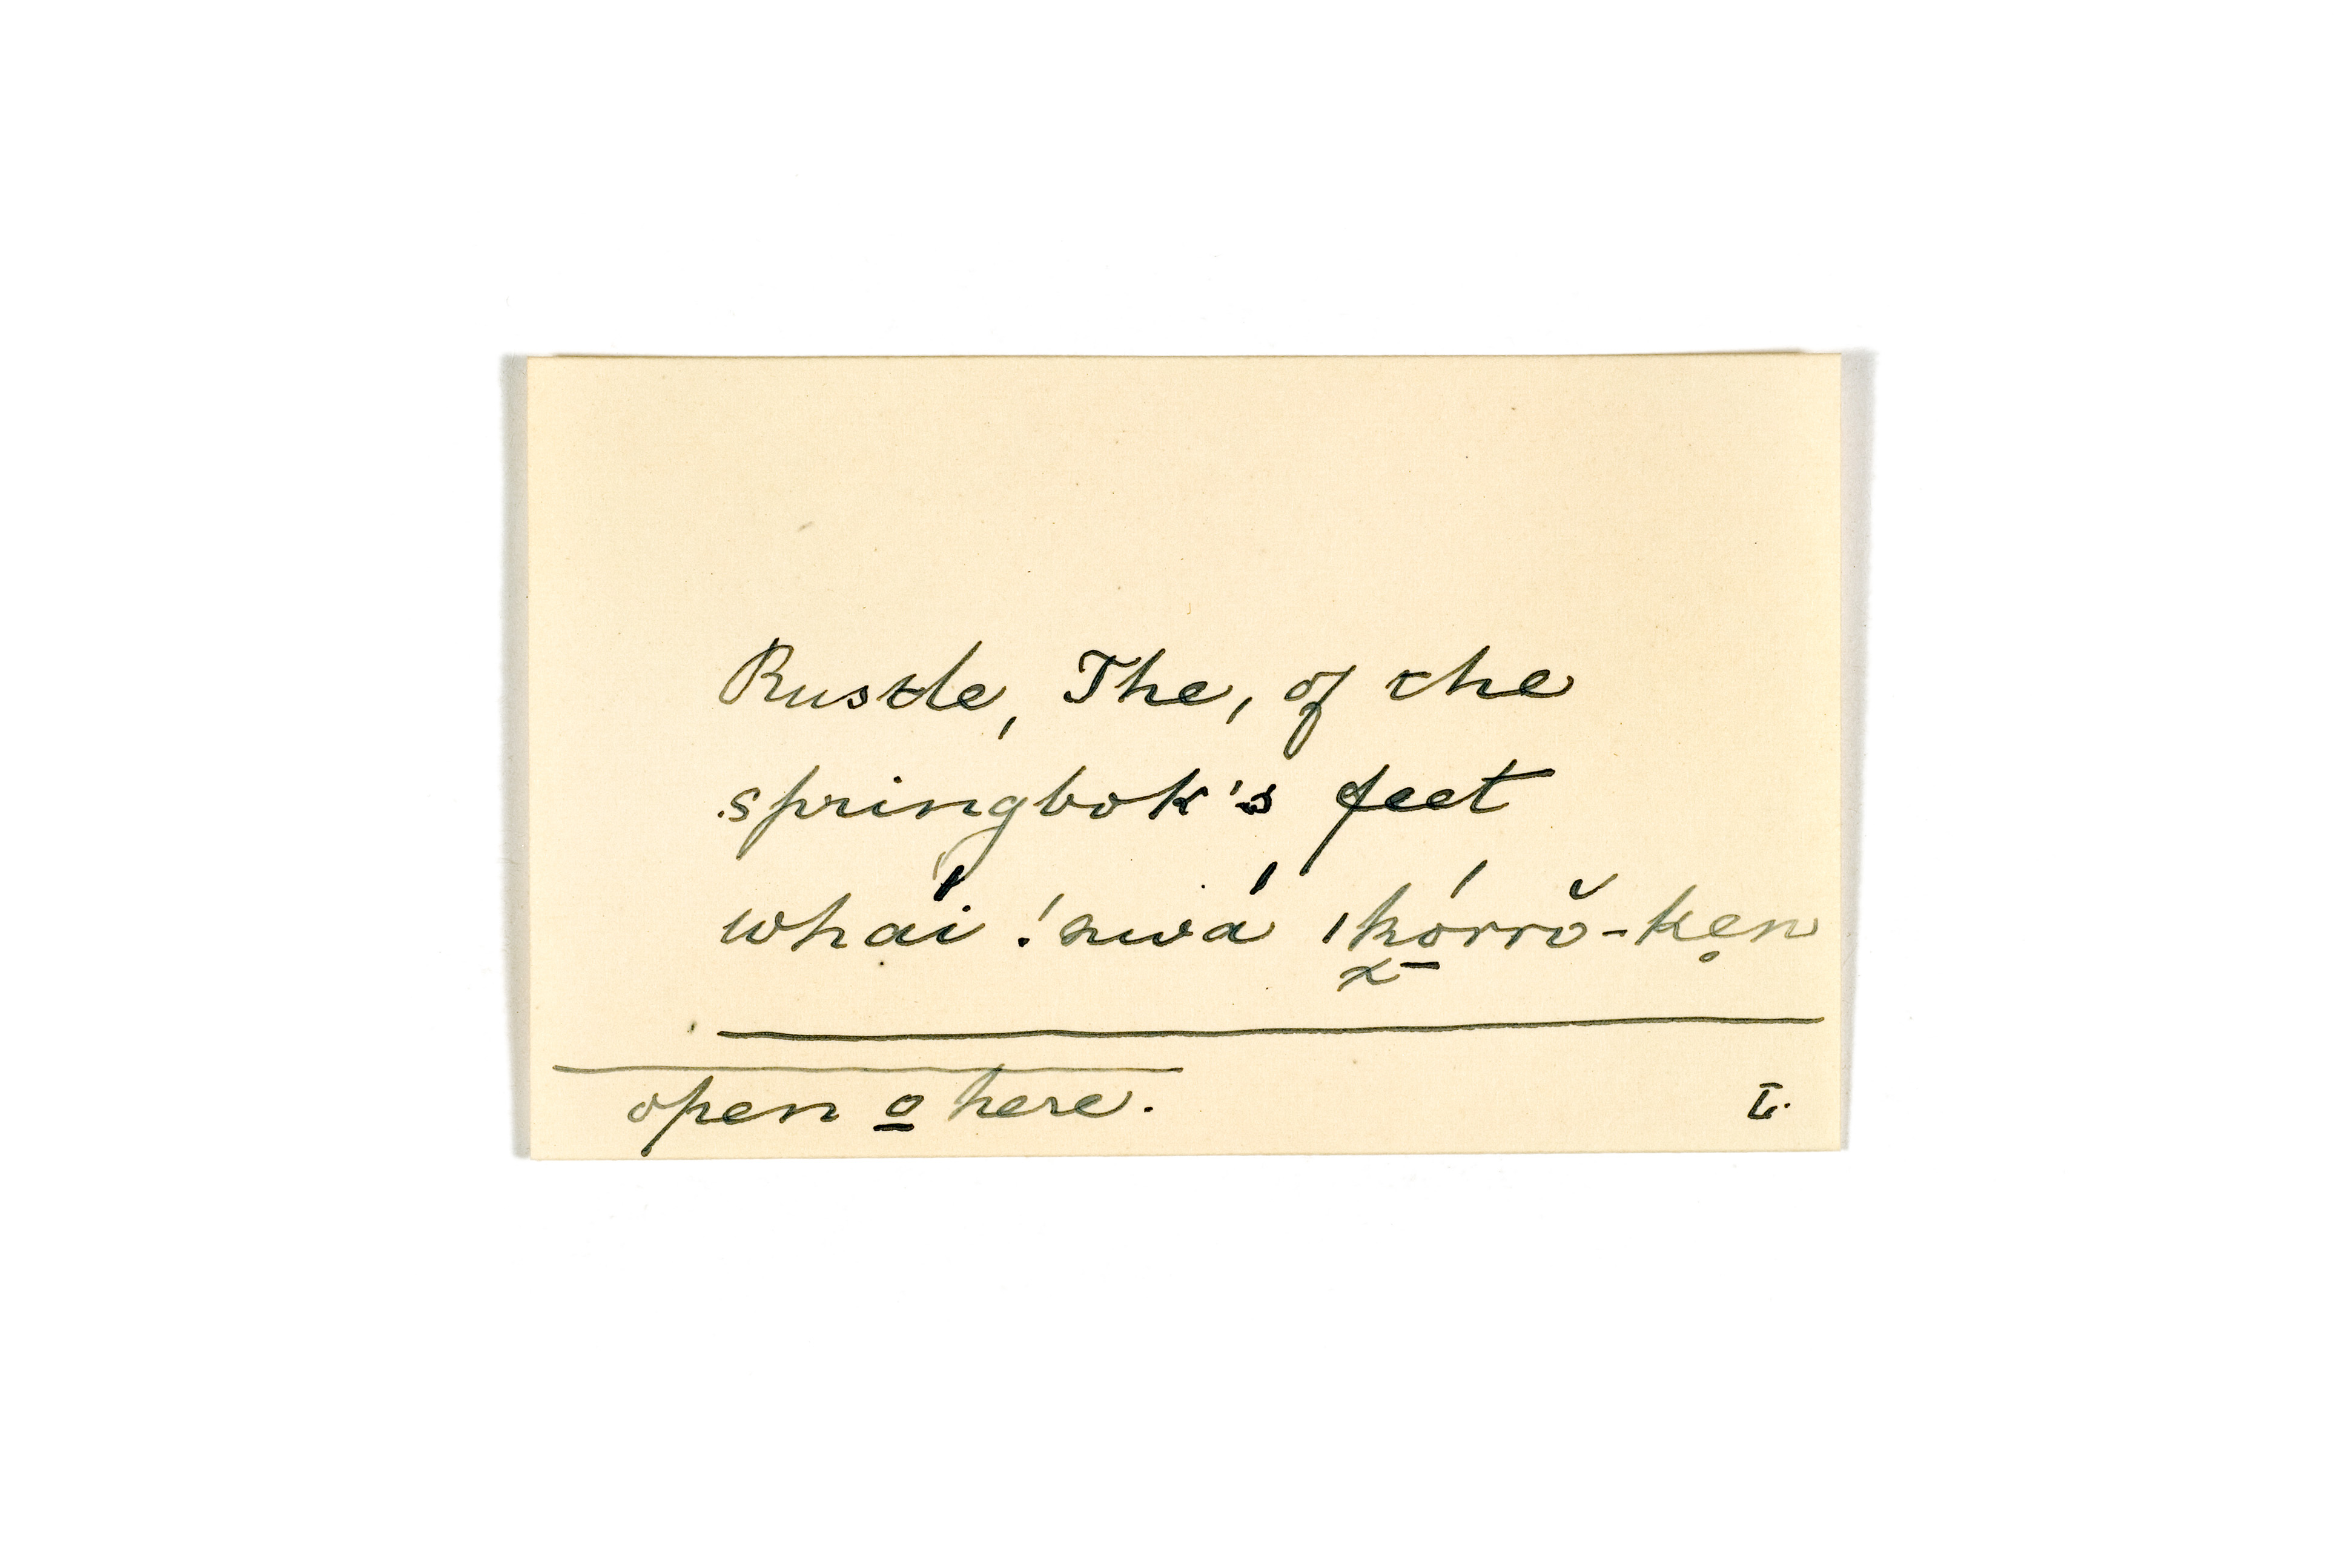 Rustle, The, of the
springbok's feet
whái !nwá ǀkó̱rrŏ-ken̥
open o̲ here.
L.